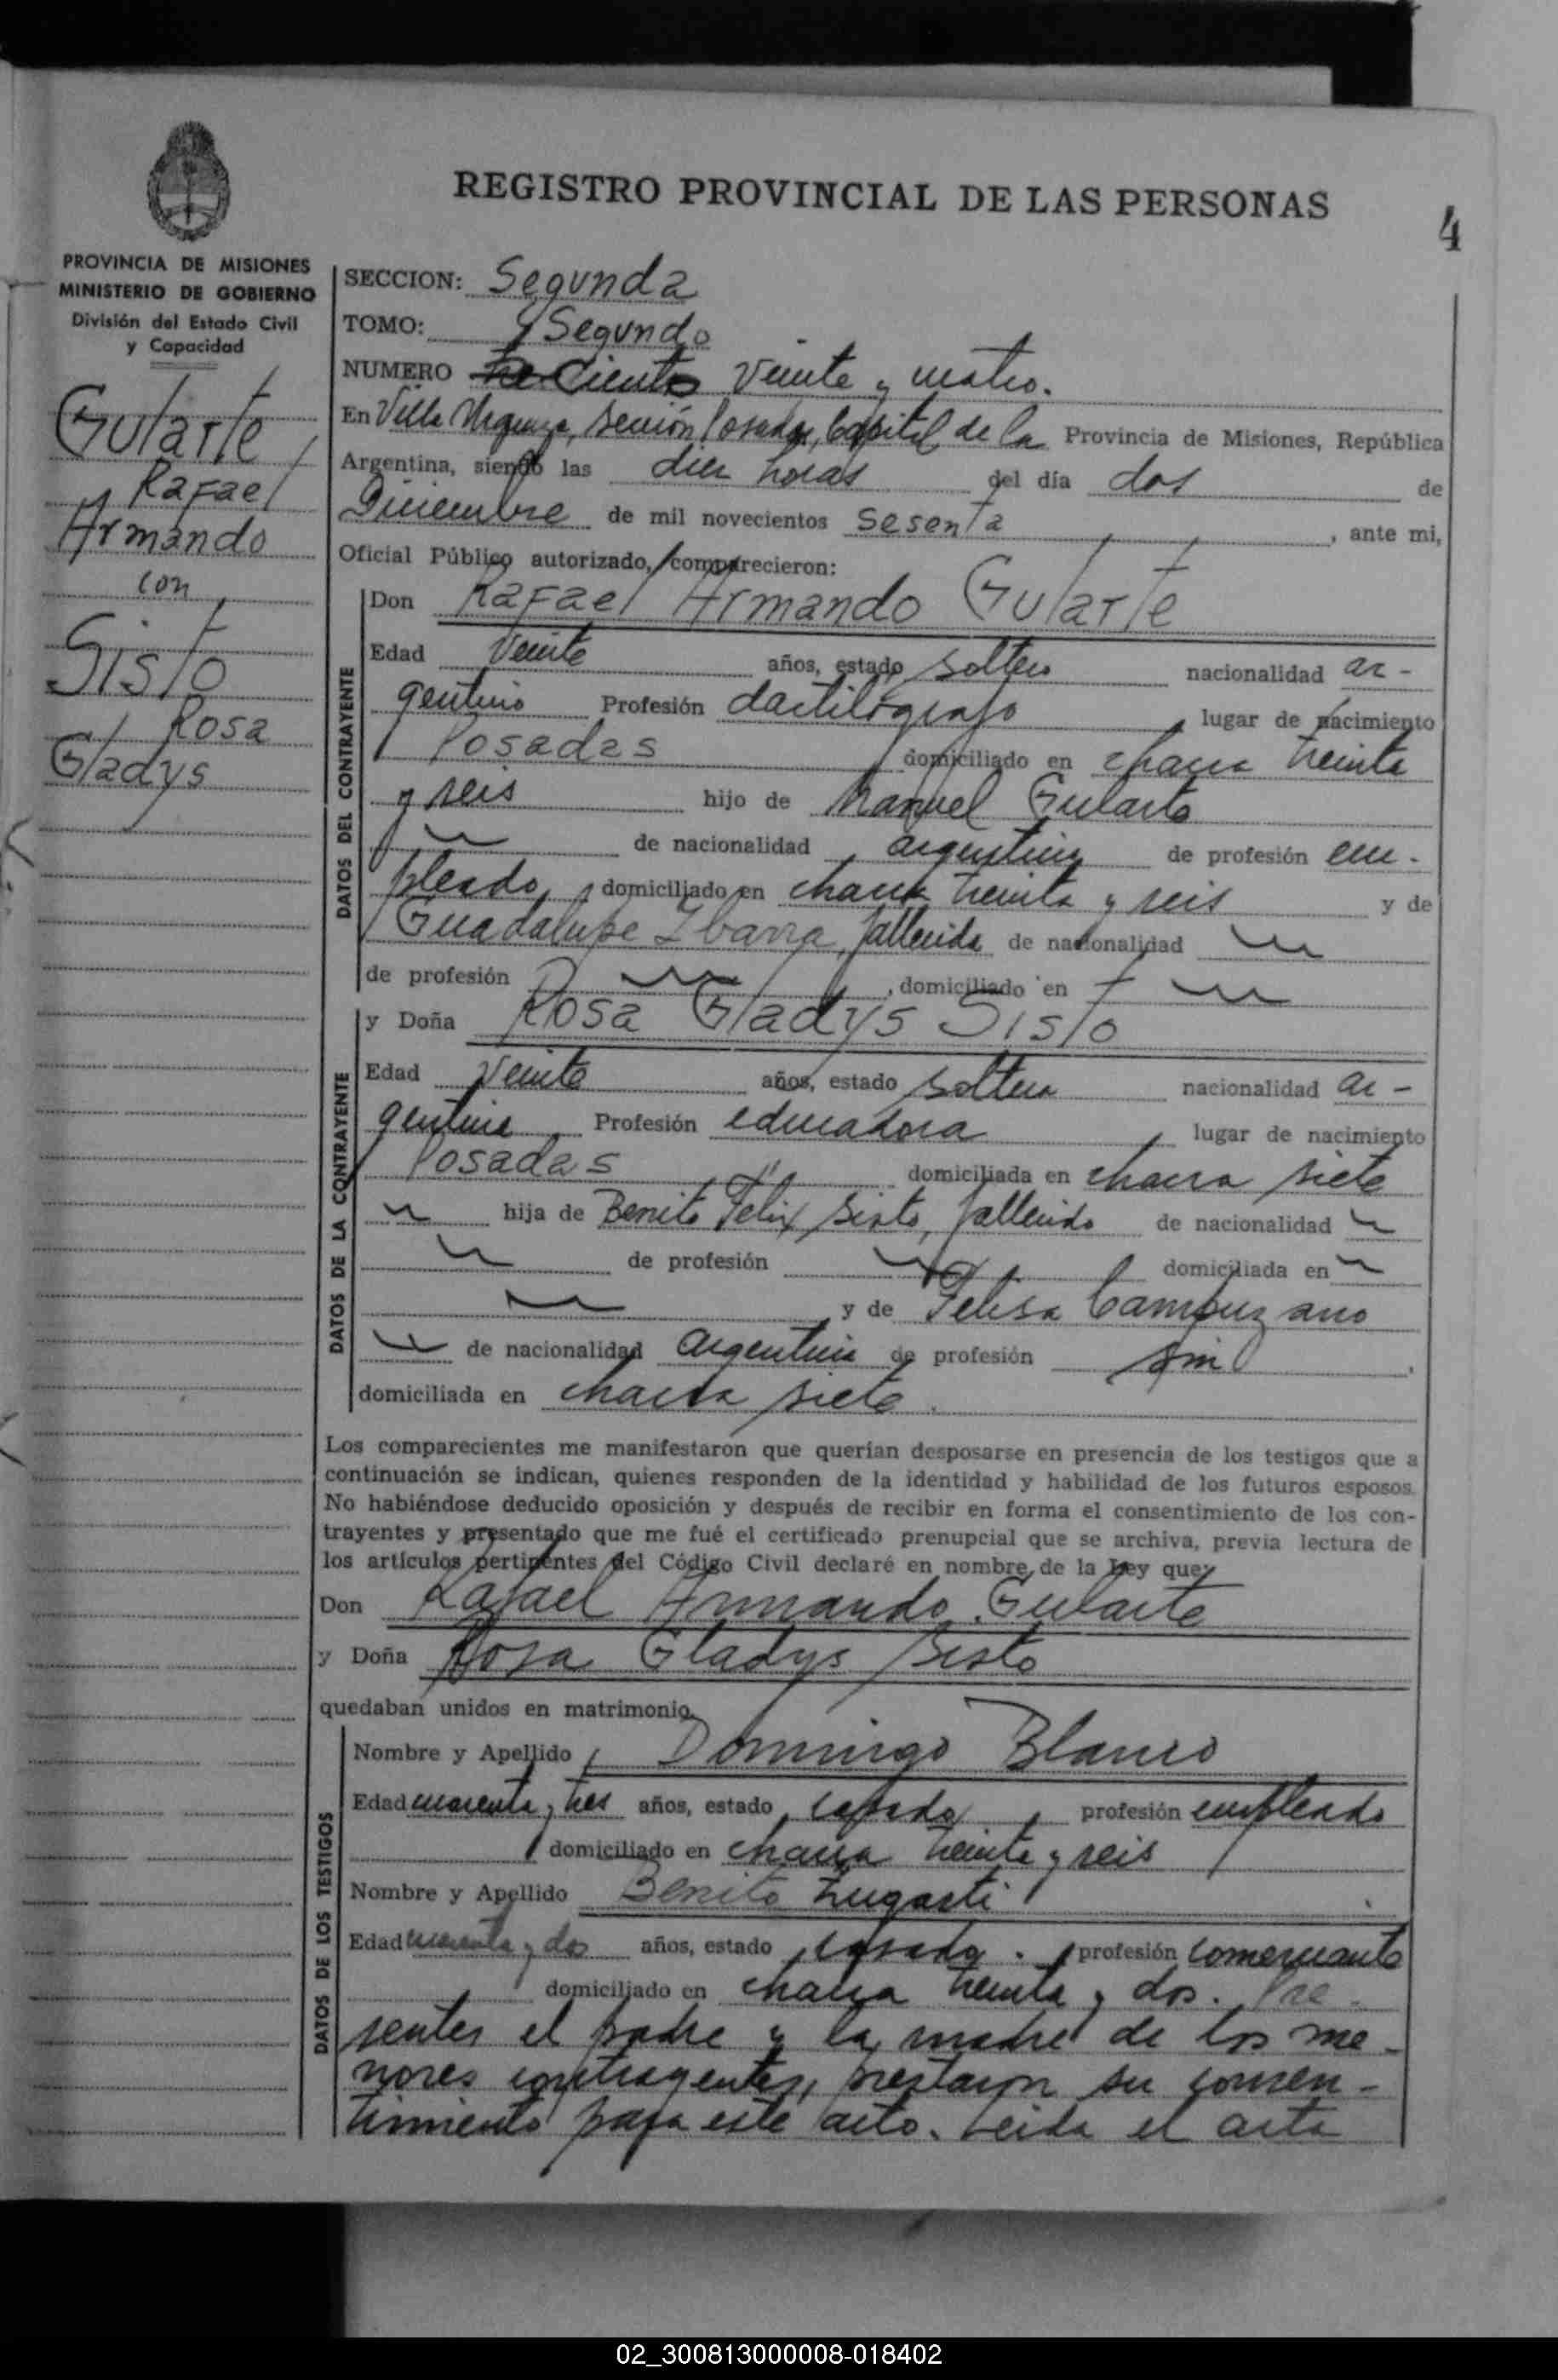 REGISTRO PROVINCIAL DE LAS PERSONAS
4
PROVINCIA DE MISIONES
MINISTERIO DE GOBIERNO
División del Estado Civil
y Capacidad
Gularte
Rafael
Armando
con
Sisto
Rosa
Gladys
SECCION: Segunda
TOMO: Segundo
NUMERO Ciento veinte y cuatro.
En Villa Urquiza, sección Posadas, Capital de la Provincia de Misiones, República
Argentina, siendo las diez horas del día dos de
Diciembre de mil novecientos sesenta, ante mi,
Oficial Público autorizado, comparecieron:
DATOS DEL CONTRAYENTE
Don Rafael Armando Gularte
Edad veinte años, estado soltero nacionalidad ar-
gentino Profesión dactilógrafo lugar de nacimiento
Posadas domiciliado en chacra treinta
y seis hijo de Manuel Gularte
de nacionalidad argentina de profesión em-
pleado, domiciliado en chacra treinta y seis y de
Guadalupe Ibarra, fallecida de nacionalidad
de profesión , domiciliado en
DATOS DE LA CONTRAYENTE
y Doña Rosa Gladys Sisto
Edad veinte años, estado soltera nacionalidad ar-
gentina Profesión educadora lugar de nacimiento
Posadas domiciliada en chacra siete
hija de Benito Félix Sisto, fallecido de nacionalidad
de profesión domiciliada en
y de Felisa Campuzano
de nacionalidad argentina de profesión sin
domiciliada en chacra siete.
Los comparecientes me manifestaron que querían desposarse en presencia de los testigos que a
continuación se indican, quienes responden de la identidad y habilidad de los futuros esposos.
No habiéndose deducido oposición y después de recibir en forma el consentimiento de los con-
trayentes y presentado que me fué el certificado prenupcial que se archiva, previa lectura de
los artículos pertinentes del Código Civil declaré en nombre de la Ley que:
Don Rafael Armando Gularte
y Doña Rosa Gladys Sisto
quedaban unidos en matrimonio.
DATOS DE LOS TESTIGOS
Nombre y Apellido Domingo Blanco
Edad cuarenta y tres años, estado casado, profesión empleado
domiciliado en chacra treinta y seis
Nombre y Apellido Benito
Edad cuarenta y dos años, estado casado. profesión comerciante
domiciliado en chacra treinta y dos. Pre-
sentes el padre y la madre de los me-
nores contrayentes, prestaron su consen-
timiento para este acto. Leída el acta
02_300813000008-018402